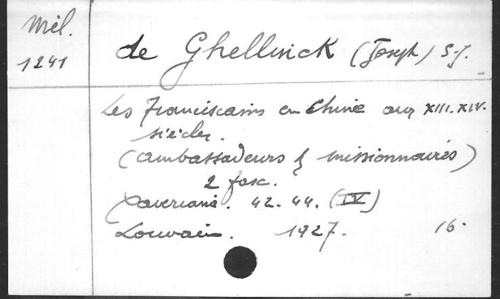 Mél.
1241
de Ghellinck (Joseph) S.J.
Les Franciscains en Chine aux XIII. XIV.
siècles.
(ambassadeurs & missionnaires)
2 fasc.
Xaveriana. 42. 44. (IV)
Louvain. 1927. 16.